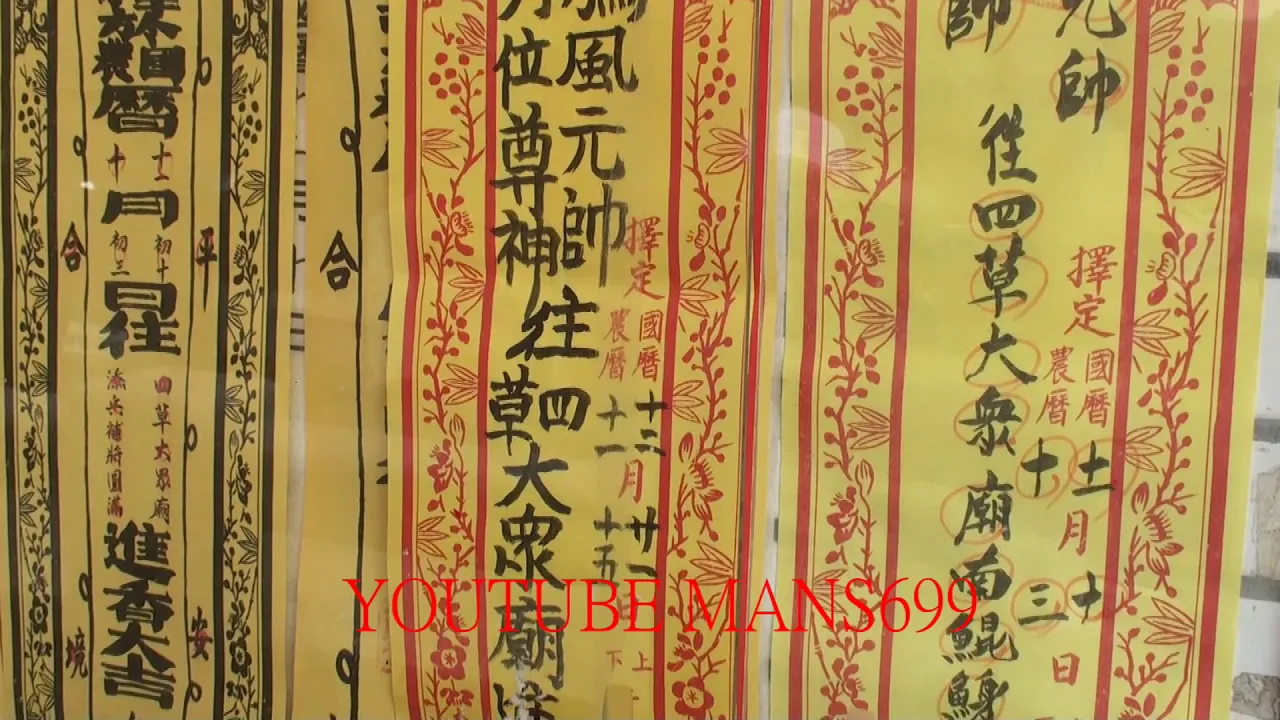 元帥
帥
往四草大眾廟南鯤鯓
擇定
國曆
十二月十日
農曆
十 三
風元帥
位尊神
往四草大眾廟
擇定
國曆
十二月廿一日
農曆
十一 十五
上
下
國曆
農曆
十二 初十
十 初三
月
日往
四草大眾廟
添兵補將圓滿
進香大吉
平
安
合
境
合
YOUTUBE MANS699